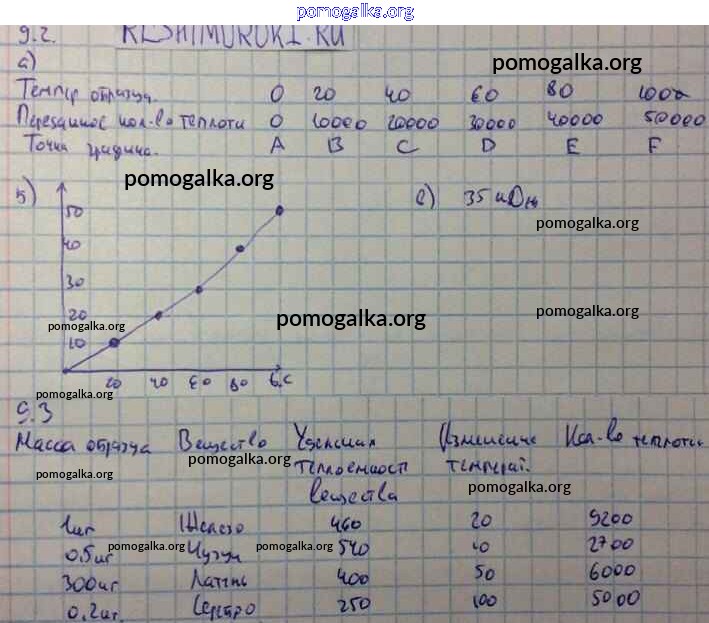 pomogalka.org
9.2. RESHIMUROKI.RU
а) pomogalka.org
Темпер образца. 0 20 40 60 80 100
Переданное кол-во теплоты 0 10000 20000 30000 40000 50000
Точка графика. A B C D E F
pomogalka.org
б) 50 с) 35 кДж
pomogalka.org
40
30
20 pomogalka.org pomogalka.org pomogalka.org
10
20 40 60 80 t,C
pomogalka.org
9.3
Масса образца Вещество Удельная Изменение Кол-во теплоты
pomogalka.org pomogalka.org теплоемкост температ.
вещества pomogalka.org
1кг Железо 460 20 9200
0.5кг pomogalka.org Чугун pomogalka.org 540 10 2700
300кг Латунь 400 50 6000
0.2кг. Серебро 250 100 5000